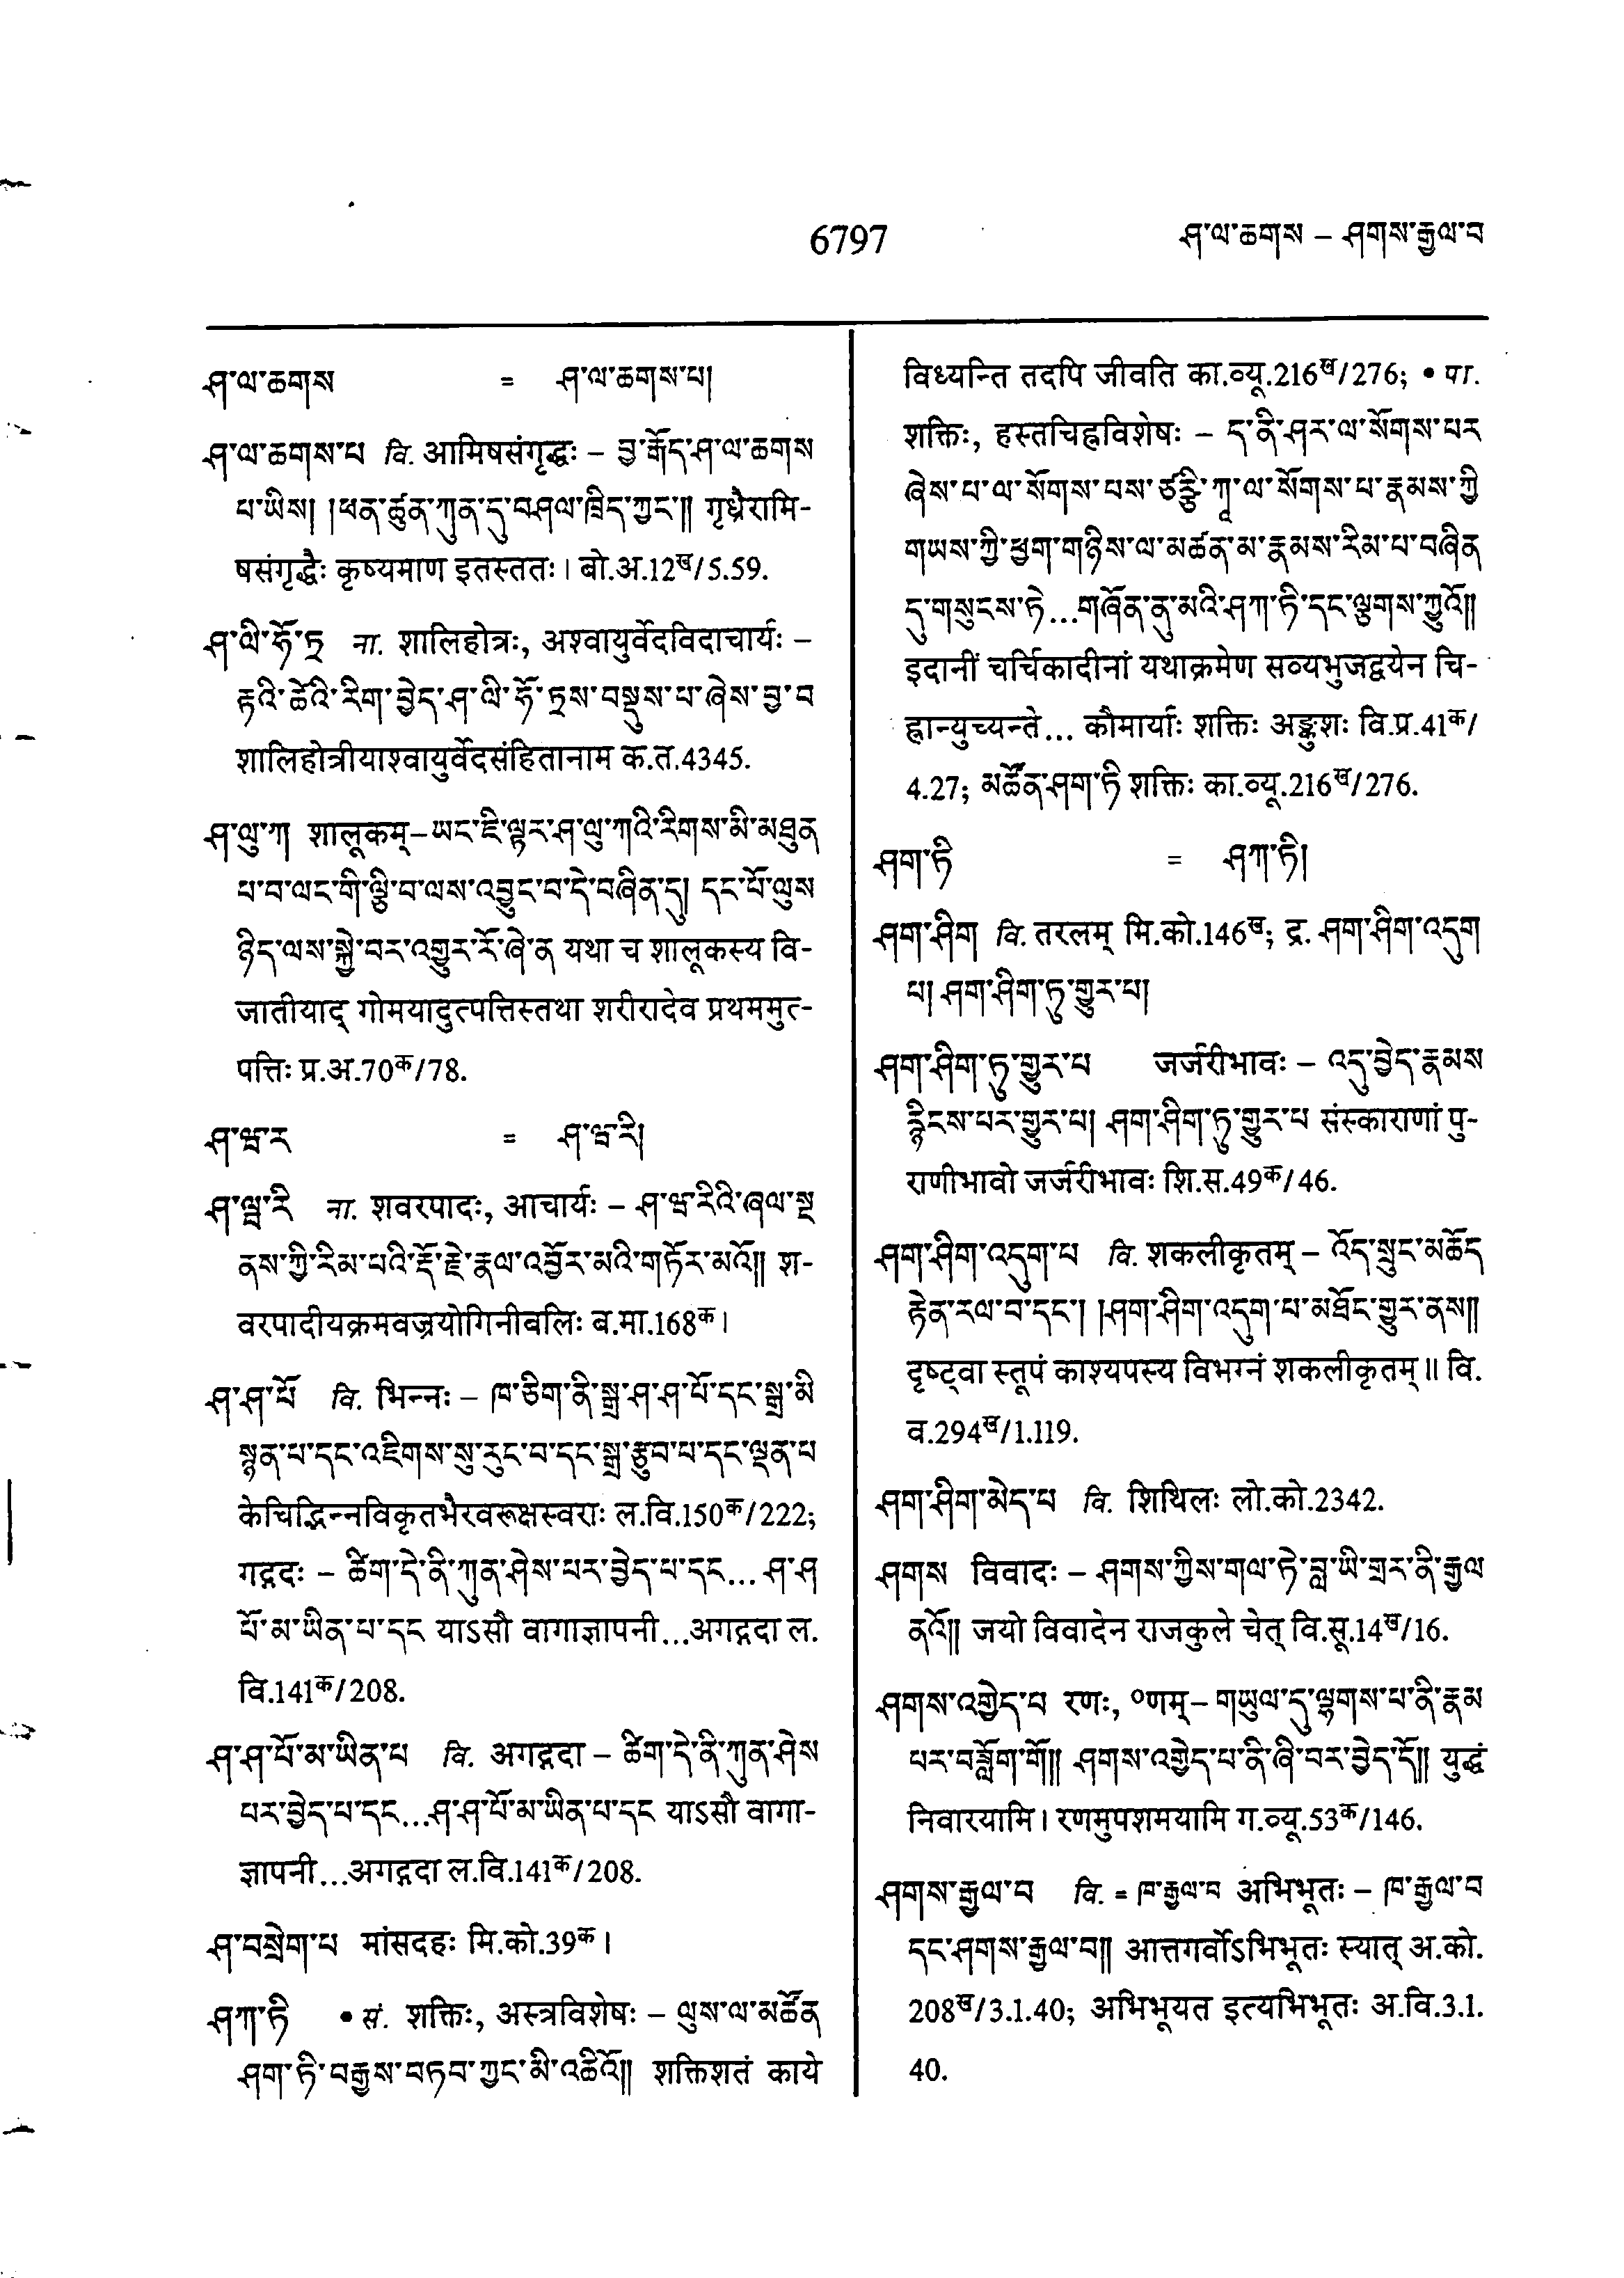 6797
ཤ་ལ་ཆགས – ཤགས་རྒྱལ་བ
ཤ་ལ་ཆགས = ཤ་ལ་ཆགས་པ།
ཤ་ལ་ཆགས་པ वि. आमिषसंगृद्धः – བྱ་རྒོད་ཤ་ལ་ཆགས
པ་ཡིས། །ཕན་ཚུན་ཀུན་དུ་བཤལ་ཁྲིད་ཀྱང་༎ गृध्रैरामि-
षसंगृद्धैः कृष्यमाण इतस्ततः। बो.अ.12ख/5.59.
ཤ་ལི་ཧོ་ཏྲ ना. शालिहोत्रः, अश्वायुर्वेदविदाचार्यः –
རྟའི་ཚེའི་རིག་བྱེད་ཤ་ལི་ཧོ་ཏྲས་བསྡུས་པ་ཞེས་བྱ་བ
शालिहोत्रीयाश्वायुर्वेदसंहितानाम क.त.4345.
ཤ་ལུ་ཀ शालूकम्–ཡང་ཇི་ལྟར་ཤ་ལུ་ཀའི་རིགས་མི་མཐུན
པ་བ་ལང་གི་ལྕི་བ་ལས་འབྱུང་བ་དེ་བཞིན་དུ། དང་པོ་ལུས
ཉིད་ལས་སྐྱེ་བར་འགྱུར་རོ་ཞེ་ན यथा च शालूकस्य वि-
जातीयाद् गोमयादुत्पत्तिस्तथा शरीरादेव प्रथममुत्-
पत्तिः प्र.अ.70क/78.
ཤ་ཝ་ར = ཤ་ཝ་རི།
ཤ་ཝ་རི ना. शवरपादः, आचार्यः – ཤ་ཝ་རིའི་ཞལ་སྔ
ནས་ཀྱི་རིམ་པའི་རྡོ་རྗེ་རྣལ་འབྱོར་མའི་གཏོར་མའོ༎ श-
वरपादीयक्रमवज्रयोगिनीबलिः ब.मा.168क।
ཤ་ཤ་པོ वि. भिन्नः – ཁ་ཅིག་ནི་སྒྲ་ཤ་ཤ་པོ་དང་སྒྲ་མི
སྙན་པ་དང་འཇིགས་སུ་རུང་བ་དང་སྒྲ་རྩུབ་པ་དང་ལྡན་པ
केचिद्भिन्नविकृतभैरवरूक्षस्वराः ल.वि.150क/222;
गद्गदः – ཚིག་དེ་ནི་ཀུན་ཤེས་པར་བྱེད་པ་དང...ཤ་ཤ
པོ་མ་ཡིན་པ་དང याऽसौ वागाज्ञापनी...अगद्गदा ल.
वि.141क/208.
ཤ་ཤ་པོ་མ་ཡིན་པ वि. अगद्गदा – ཚིག་དེ་ནི་ཀུན་ཤེས
པར་བྱེད་པ་དང...ཤ་ཤ་པོ་མ་ཡིན་པ་དང याऽसौ वागा-
ज्ञापनी...अगद्गदा ल.वि.141क/208.
ཤ་བསྲེག་པ मांसदहः मि.को.39क।
ཤཀ་ཏི • सं. शक्तिः, अस्त्रविशेषः – ལུས་ལ་མཚོན
ཤག་ཏི་བརྒྱས་བཏབ་ཀྱང་མི་འཚིའོ༎ शक्तिशतं काये
विध्यन्ति तदपि जीवति का.व्यू.216ख/276; • पा.
शक्तिः, हस्तचिह्नविशेषः – ད་ནི་ཤར་ལ་སོགས་པར
ཞེས་པ་ལ་སོགས་པས་ཙརྩི་ཀཱ་ལ་སོགས་པ་རྣམས་ཀྱི
གཡས་ཀྱི་ཕྱག་གཉིས་ལ་མཚན་མ་རྣམས་རིམ་པ་བཞིན
དུ་གསུངས་ཏེ...གཞོན་ནུ་མའི་ཤཀ་ཏི་དང་ལྕགས་ཀྱུའོ༎
इदानीं चर्चिकादीनां यथाक्रमेण सव्यभुजद्वयेन चि-
ह्नान्युच्यन्ते... कौमार्याः शक्तिः अङ्कुशः वि.प्र.41क/
4.27; མཚོན་ཤག་ཏི शक्तिः का.व्यू.216ख/276.
ཤག་ཏི = ཤཀ་ཏི།
ཤག་ཤིག वि. तरलम् मि.को.146ख; द्र. ཤག་ཤིག་འདུག
པ། ཤག་ཤིག་ཏུ་གྱུར་པ།
ཤག་ཤིག་ཏུ་གྱུར་པ जर्जरीभावः – འདུ་བྱེད་རྣམས
རྙིངས་པར་གྱུར་པ། ཤག་ཤིག་ཏུ་གྱུར་པ संस्काराणां पु-
राणीभावो जर्जरीभावः शि.स.49क/46.
ཤག་ཤིག་འདུག་པ वि. शकलीकृतम् – འོད་སྲུང་མཆོད
རྟེན་རལ་བ་དང་། །ཤག་ཤིག་འདུག་པ་མཐོང་གྱུར་ནས༎
दृष्ट्वा स्तूपं काश्यपस्य विभग्नं शकलीकृतम्॥ वि.
व.294ख/1.119.
ཤག་ཤིག་མེད་པ वि. शिथिलः लो.को.2342.
ཤགས विवादः – ཤགས་ཀྱིས་གལ་ཏེ་བླ་ཡི་གྲར་ནི་རྒྱལ
ནའོ༎ जयो विवादेन राजकुले चेत् वि.सू.14ख/16.
ཤགས་འགྱེད་པ रणः, ०णम्– གཡུལ་དུ་ལྷགས་པ་ནི་རྣམ
པར་བཟློག་གོ༎ ཤགས་འགྱེད་པ་ནི་ཞི་བར་བྱེད་དོ༎ युद्धं
निवारयामि। रणमुपशमयामि ग.व्यू.53क/146.
ཤགས་རྒྱལ་བ वि. = ཁ་རྒྱལ་བ अभिभूतः – ཁ་རྒྱལ་བ
དང་ཤགས་རྒྱལ་བ༎ आत्तगर्वोऽभिभूतः स्यात् अ.को.
208ख/3.1.40; अभिभूयत इत्यभिभूतः अ.वि.3.1.
40.